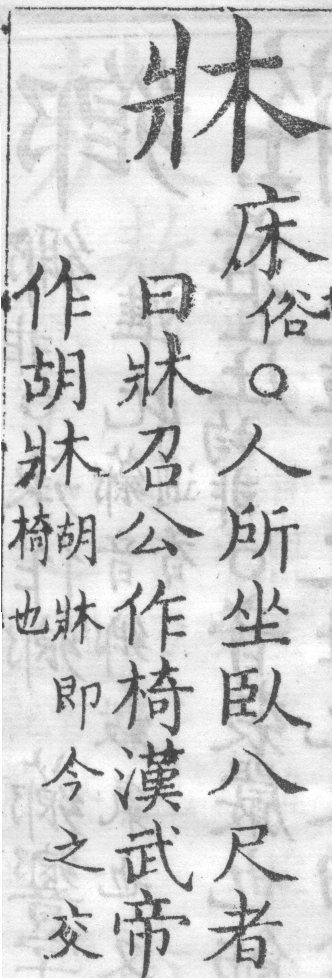 牀
床俗〇人所坐臥八尺者
曰牀召公作椅漢武帝
作胡牀胡牀即今之交
椅也